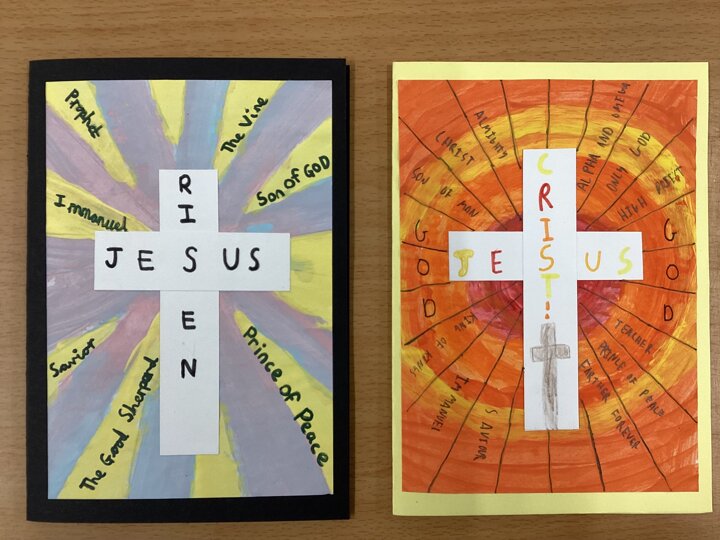 Prophet
The Vine
Son of GOD
Immanuel
RISEN
JESUS
Savior
The Good Sheperd
Prince of Peace
SON OF MAN
CHRIST
ALMIGHTY
ALPHA AND
ONLY GOD
HIGH PRIEST
GOD
CRIST!
JESUS
GOD
KING OF KINGS
IMMANUEL
SAVIOR
TEACHER
PRINCE OF PEACE
PARTNER FOREVER